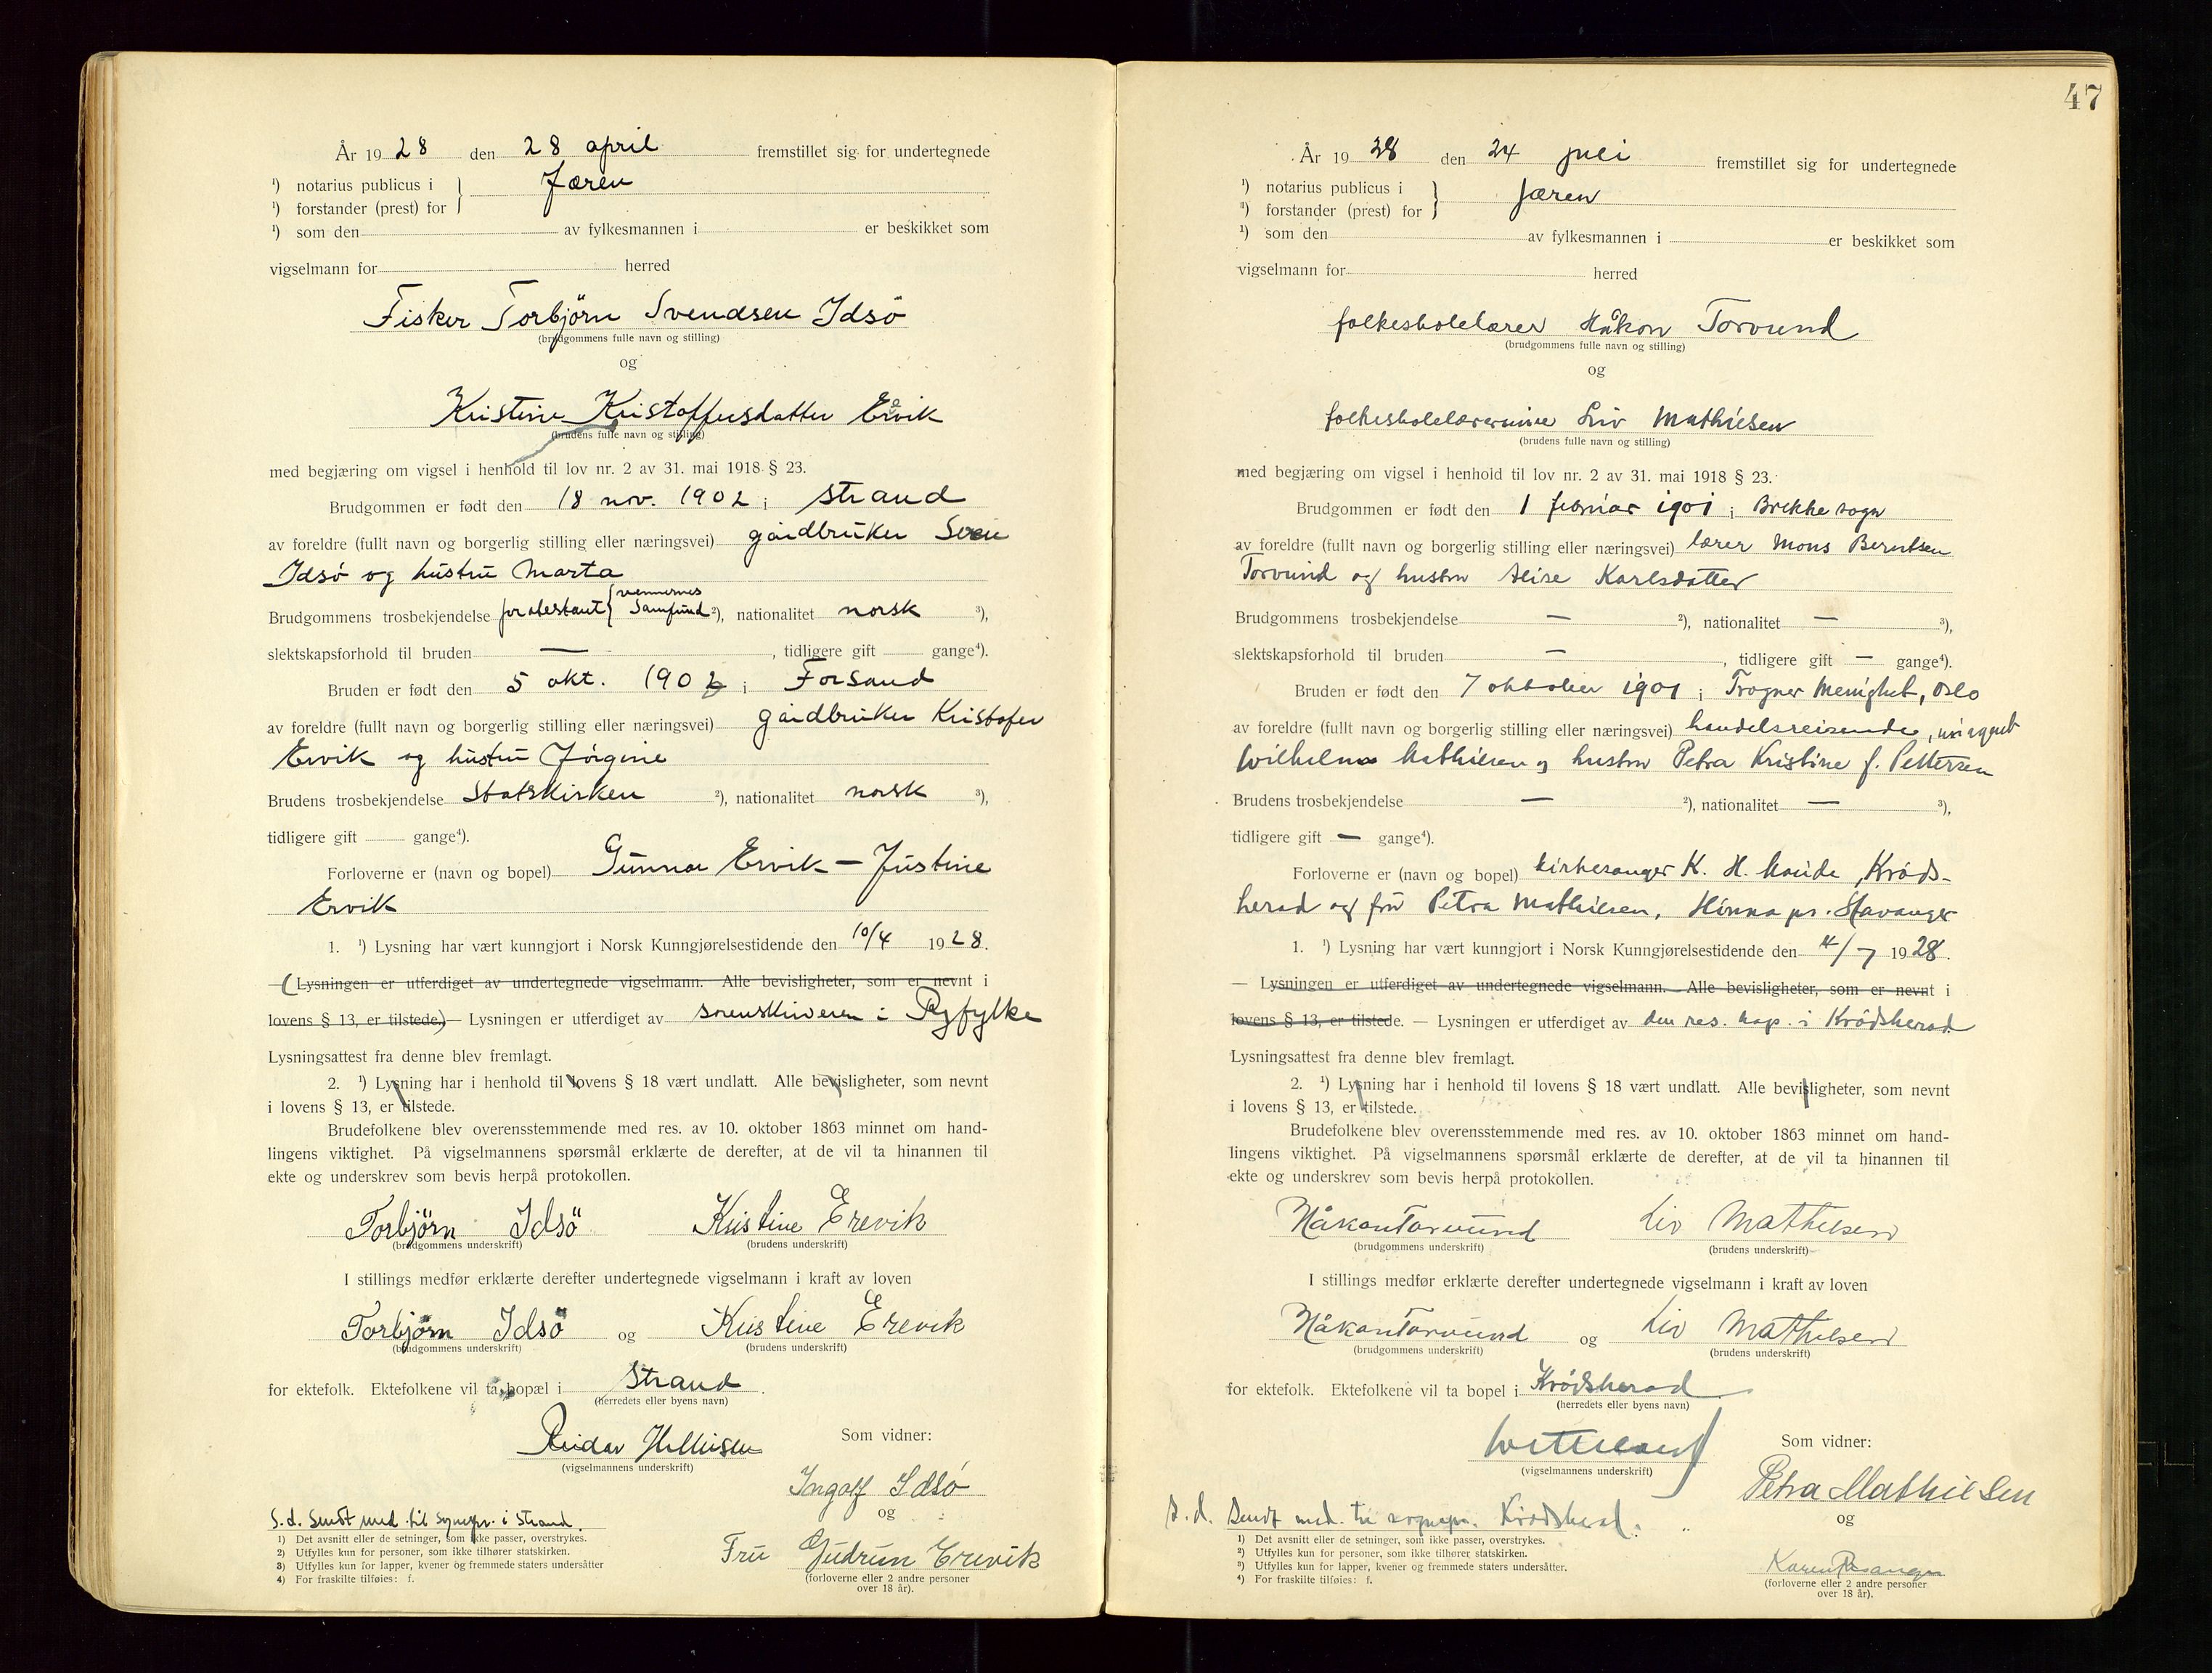 År 1928 den 28 april fremstillet sig for undertegnede
¹) notarius publicus i } Jæren
¹) forstander (prest) for
¹) som den av fylkesmannen i er beskikket som
vigselmann for herred
Fisker Torbjörn Svendsen Idsö
(brudgommens fulle navn og stilling)
og
Kristine Kristoffersdatter Ervik
(brudens fulle navn og stilling)
med begjæring om vigsel i henhold til lov nr. 2 av 31. mai 1918 § 23.
Brudgommen er født den 18 nov. 1902 i Strand
av foreldre (fullt navn og borgerlig stilling eller næringsvei) gårdbruker Svein
Idsö og hustru Marta
Brudgommens trosbekjendelse protestant { vennernes Samfund ²), nationalitet norsk ³),
slektskapsforhold til bruden — , tidligere gift gange⁴).
Bruden er født den 5 okt. 1902 i Forsand
av foreldre (fullt navn og borgerlig stilling eller næringsvei) gårdbruker Kristofer
Ervik og hustru Jörgine
Brudens trosbekjendelse Statskirken ²), nationalitet norsk ³),
tidligere gift gange⁴).
Forloverne er (navn og bopel) Gunnar Ervik — Justine
Ervik
1. ¹) Lysning har vært kunngjort i Norsk Kunngjørelsestidende den 10/4 1928.
—(Lysningen er utferdiget av undertegnede vigselmann. Alle bevisligheter, som er nevnt i
lovens § 13, er tilstede.)— Lysningen er utferdiget av sorenskriveren i Ryfylke
Lysningsattest fra denne blev fremlagt.
2. ¹) Lysning har i henhold til lovens § 18 vært undlatt. Alle bevisligheter, som nevnt
i lovens § 13, er tilstede.
Brudefolkene blev overensstemmende med res. av 10. oktober 1863 minnet om hand-
lingens viktighet. På vigselmannens spørsmål erklærte de derefter, at de vil ta hinannen til
ekte og underskrev som bevis herpå protokollen.
Torbjörn Idsö Kristine Erevik
(brudgommens underskrift) (brudens underskrift)
I stillings medfør erklærte derefter undertegnede vigselmann i kraft av loven
Torbjörn Idsö og Kristine Erevik
(brudgommens underskrift) (brudens underskrift)
for ektefolk. Ektefolkene vil ta bopæl i Strand.
(herredets eller byens navn)
Reidar Som vidner:
(vigselmannens underskrift)
Ingolf Idsö
og
S.d. Sendt med. til sognepr. i Strand.
Fru Gudrun Erevik
(forloverne eller 2 andre personer
over 18 år).
1) Det avsnitt eller de setninger, som ikke passer, overstrykes.
2) Utfylles kun for personer, som ikke tilhører statskirken.
3) Utfylles kun for lapper, kvener og fremmede staters undersåtter
4) For fraskilte tilføies: f.
47
År 1928 den 24 juli fremstillet sig for undertegnede
¹) notarius publicus i } Jæren
¹) forstander (prest) for
¹) som den av fylkesmannen i er beskikket som
vigselmann for herred
folkeskolelærer Håkon Torvund
(brudgommens fulle navn og stilling)
og
folkeskolelærerinne Liv Mathiesen
(brudens fulle navn og stilling)
med begjæring om vigsel i henhold til lov nr. 2 av 31. mai 1918 § 23.
Brudgommen er født den 1 februar 1901 i Brekke sogn
av foreldre (fullt navn og borgerlig stilling eller næringsvei) lærer Mons Berntsen
Torvund og hustru Alise Karlsdatter
Brudgommens trosbekjendelse — ²), nationalitet — ³),
slektskapsforhold til bruden — , tidligere gift — gange⁴).
Bruden er født den 7 oktober 1901 i Frogner Menighet, Oslo
av foreldre (fullt navn og borgerlig stilling eller næringsvei) handelsreisende,
Wilhelm Mathiesen og hustru Petra Kristine f. Pettersen
Brudens trosbekjendelse — ²), nationalitet — ³),
tidligere gift — gange⁴).
Forloverne er (navn og bopel) kirkesanger K. H. Kröds-
herad og fru Petra Mathiesen, Hinna pr. Stavanger
1. ¹) Lysning har vært kunngjort i Norsk Kunngjørelsestidende den 4/7 1928.
— Lysningen er utferdiget av undertegnede vigselmann. — Alle bevisligheter, som er nevnt i
lovens § 13, er tilstede. — Lysningen er utferdiget av den res. kap. i Krödsherad
Lysningsattest fra denne blev fremlagt.
2. ¹) Lysning har i henhold til lovens § 18 vært undlatt. Alle bevisligheter, som nevnt
i lovens § 13, er tilstede.
Brudefolkene blev overensstemmende med res. av 10. oktober 1863 minnet om hand-
lingens viktighet. På vigselmannens spørsmål erklærte de derefter, at de vil ta hinannen til
ekte og underskrev som bevis herpå protokollen.
Håkon Torvund Liv Mathiesen
(brudgommens underskrift) (brudens underskrift)
I stillings medfør erklærte derefter undertegnede vigselmann i kraft av loven
Håkon Torvund og Liv Mathiesen
(brudgommens underskrift) (brudens underskrift)
for ektefolk. Ektefolkene vil ta bopel i Krödsherad
(herredets eller byens navn)
Som vidner:
(vigselmannens underskrift)
Petra Mathiesen
s.d. Sendt med. til sognepr. Krödsherad.
og
Karen
(forloverne eller 2 andre personer
over 18 år).
1) Det avsnitt eller de setninger, som ikke passer, overstrykes.
2) Utfylles kun for personer, som ikke tilhører statskirken.
3) Utfylles kun for lapper, kvener og fremmede staters undersåtter.
4) For fraskilte tilføies: f.